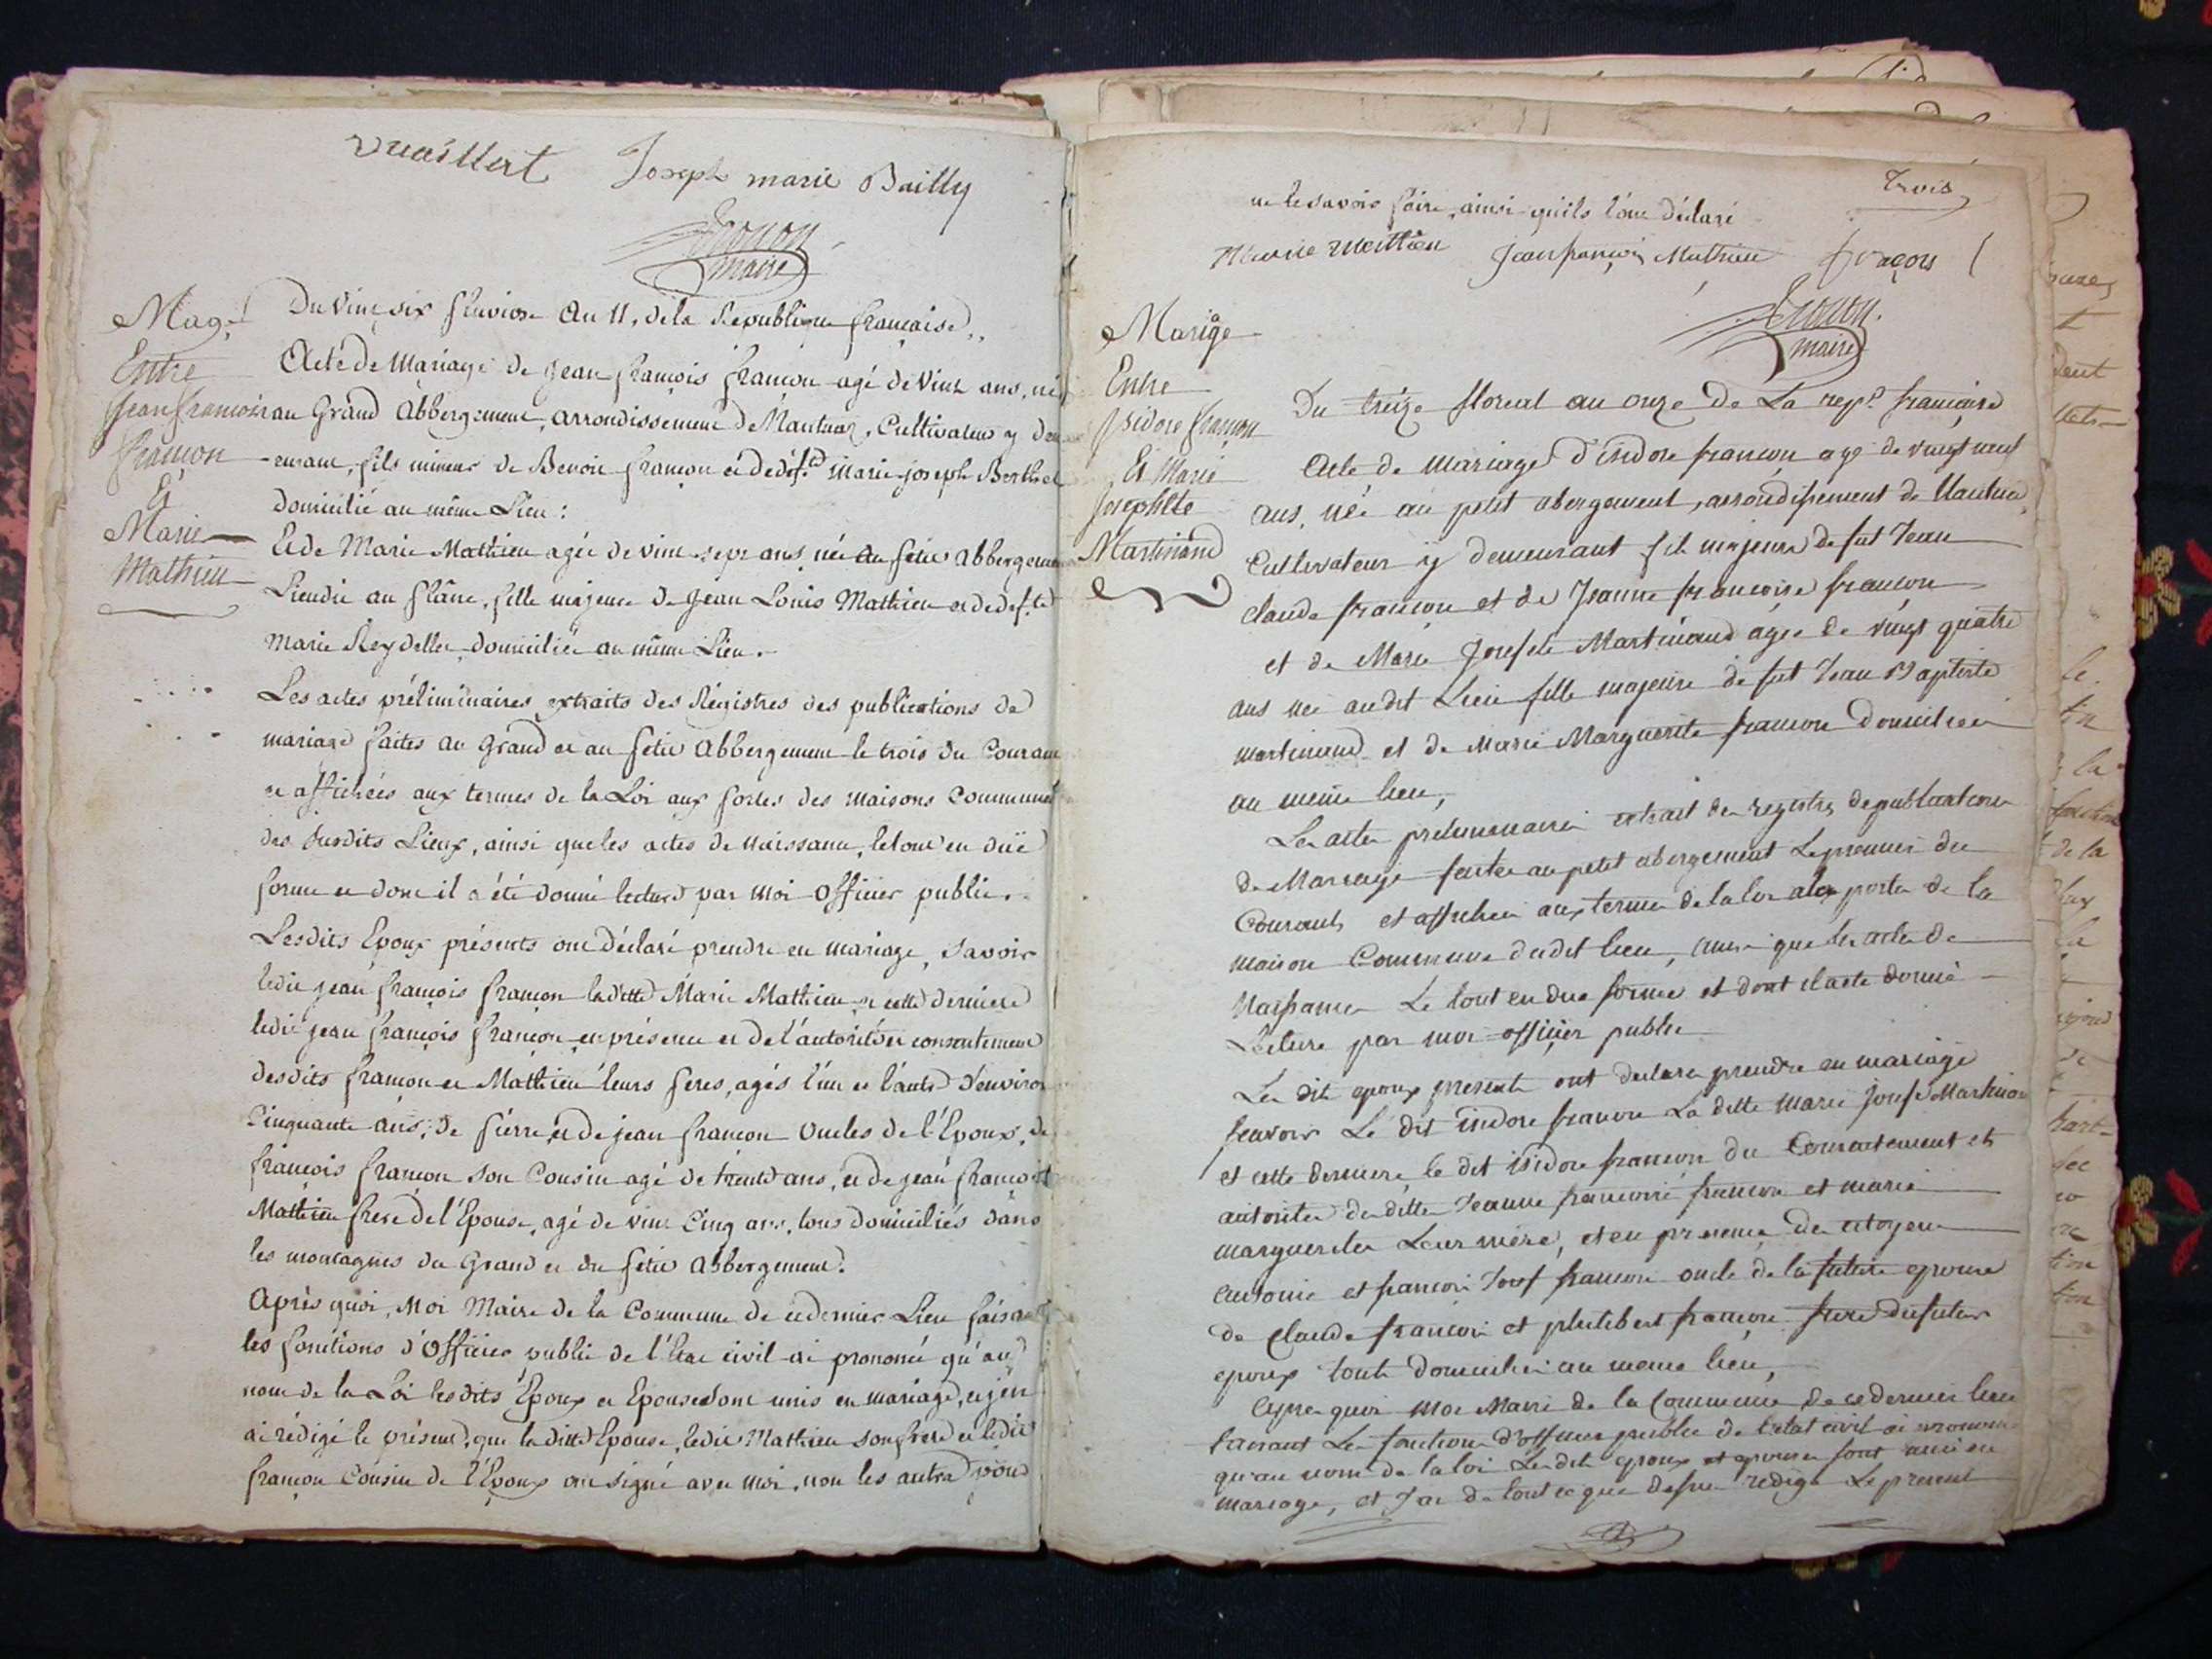 vuaillert Joseph marie Bailly
maire
Mag.e
Entre
Jean françois
françon
Et
Marie
Mathieu
Du vint six pluviose an 11, de la République française,
Acte de mariage de jean françois françon agé de vint ans, né
au Grand Abbergement, arrondissement de Nantua, Cultivateur y dem
eurant, fils mineur de Benoit françon et de def.te marie joseph Berthet
domicilié au même Lieu:
Et de Marie Mathieu agée de vint sept ans, née au petit abbergement
Lieudit au plâne, fille majeure de jean Louis Mathieu et de def.te
marie Reydellet, domiciliée au même Lieu.
Les actes préliminaires extraits des Régistres des publications de
mariage faites au Grand et au petit abbergement le trois du Courant
et affichées aux termes de la Loi aux portes des maisons Communes
des susdits Lieux, ainsi que les actes de naissance, le tout en duë
forme et dont il a été donné lecture par moi officier public.
Lesdits Epoux présents ont déclaré prendre en mariage, savoir
ledit jean françois françon ladite Marie Mathieu et cette derniere
ledit jean françois françon en présence et de l'autorité et consentement
desdits françon et Mathieu leurs peres, agés l'un et l'autre d'environ
Cinquante ans, de pierre et de jean françon oncles de l'Epoux, de
françois françon son Cousin agé de trente ans, et de jean françois
Mathieu frere de l'Epouse, agé de vint Cinq ans, tous domiciliés dans
les montagnes du Grand et du petit abbergement.
Après quoi, Moi Maire de la Commune de ce dernier Lieu faisant
les fonctions d'officier public de l'état civil ai prononcé qu'au
nom de la Loi lesdits Epoux et Epouse sont unis en mariage, et j'en
ai rédigé le présent, que la ditte Epouse, ledit Mathieu son frere et ledit
françon Cousin de l'Epoux ont signé avec moi, non les autres pour
trois
ne le savoir faire, ainsi qu'ils l'ont déclaré
Marie Matthieu Jean françois Mathieu françois
maire
Mariage
Entre
Isidore françon
Et Marie
Josephtte
Martinand
Du treize floreal an onze de La rep.e française
Acte de mariage d'isidore françon age de vingt neuf
ans, née au petit abergement, arrondissement de Nantua,
Cultivateur y demeurant fils majeure de fut Jean
claude françon et de Jeanne françoise françon
et de Marie Josefte Martinand agée de vingt quatre
ans nee audit Lieu fille majeure de fut Jean Baptiste
martinand et de Marie Marguerite françon Domicilieé
au meme lieu,
Les actes preliminaires extrait des registres de publications
de Mariage faites au petit abergement Le premier du
Courant, et affichée aux termes de la loi a la porte de la
maison Commune dudit lieu, ainsi que les actes de
Naissance Le tout en due forme et dont il a ete donné
Lecture par moi officier public
Les dits epoux present ont declare prendre en mariage
scavoir Le dit isidore françon La ditte marie Josefe Martinand
et cette derniere, le dit isidore françon du Consentement et
autorites desdittes Jeanne francoise françon et marie
marguerites Leur mère, et en presence des citoyens
antoine et françois Josef françon oncle de la future epouse
de Claude françon et philibert françon frere du futur
epoux touts domiciliés au meme lieu,
Apres quoi moi Maire de la Commune de ce dernier lieu
faisant Les fonctions d'officier public de l'etat civil ai prononcé
qu'au nom de la loi Lesdits epoux et epouse sont unis en
mariage, et J'ai de tout ce que dessus redigé Le present